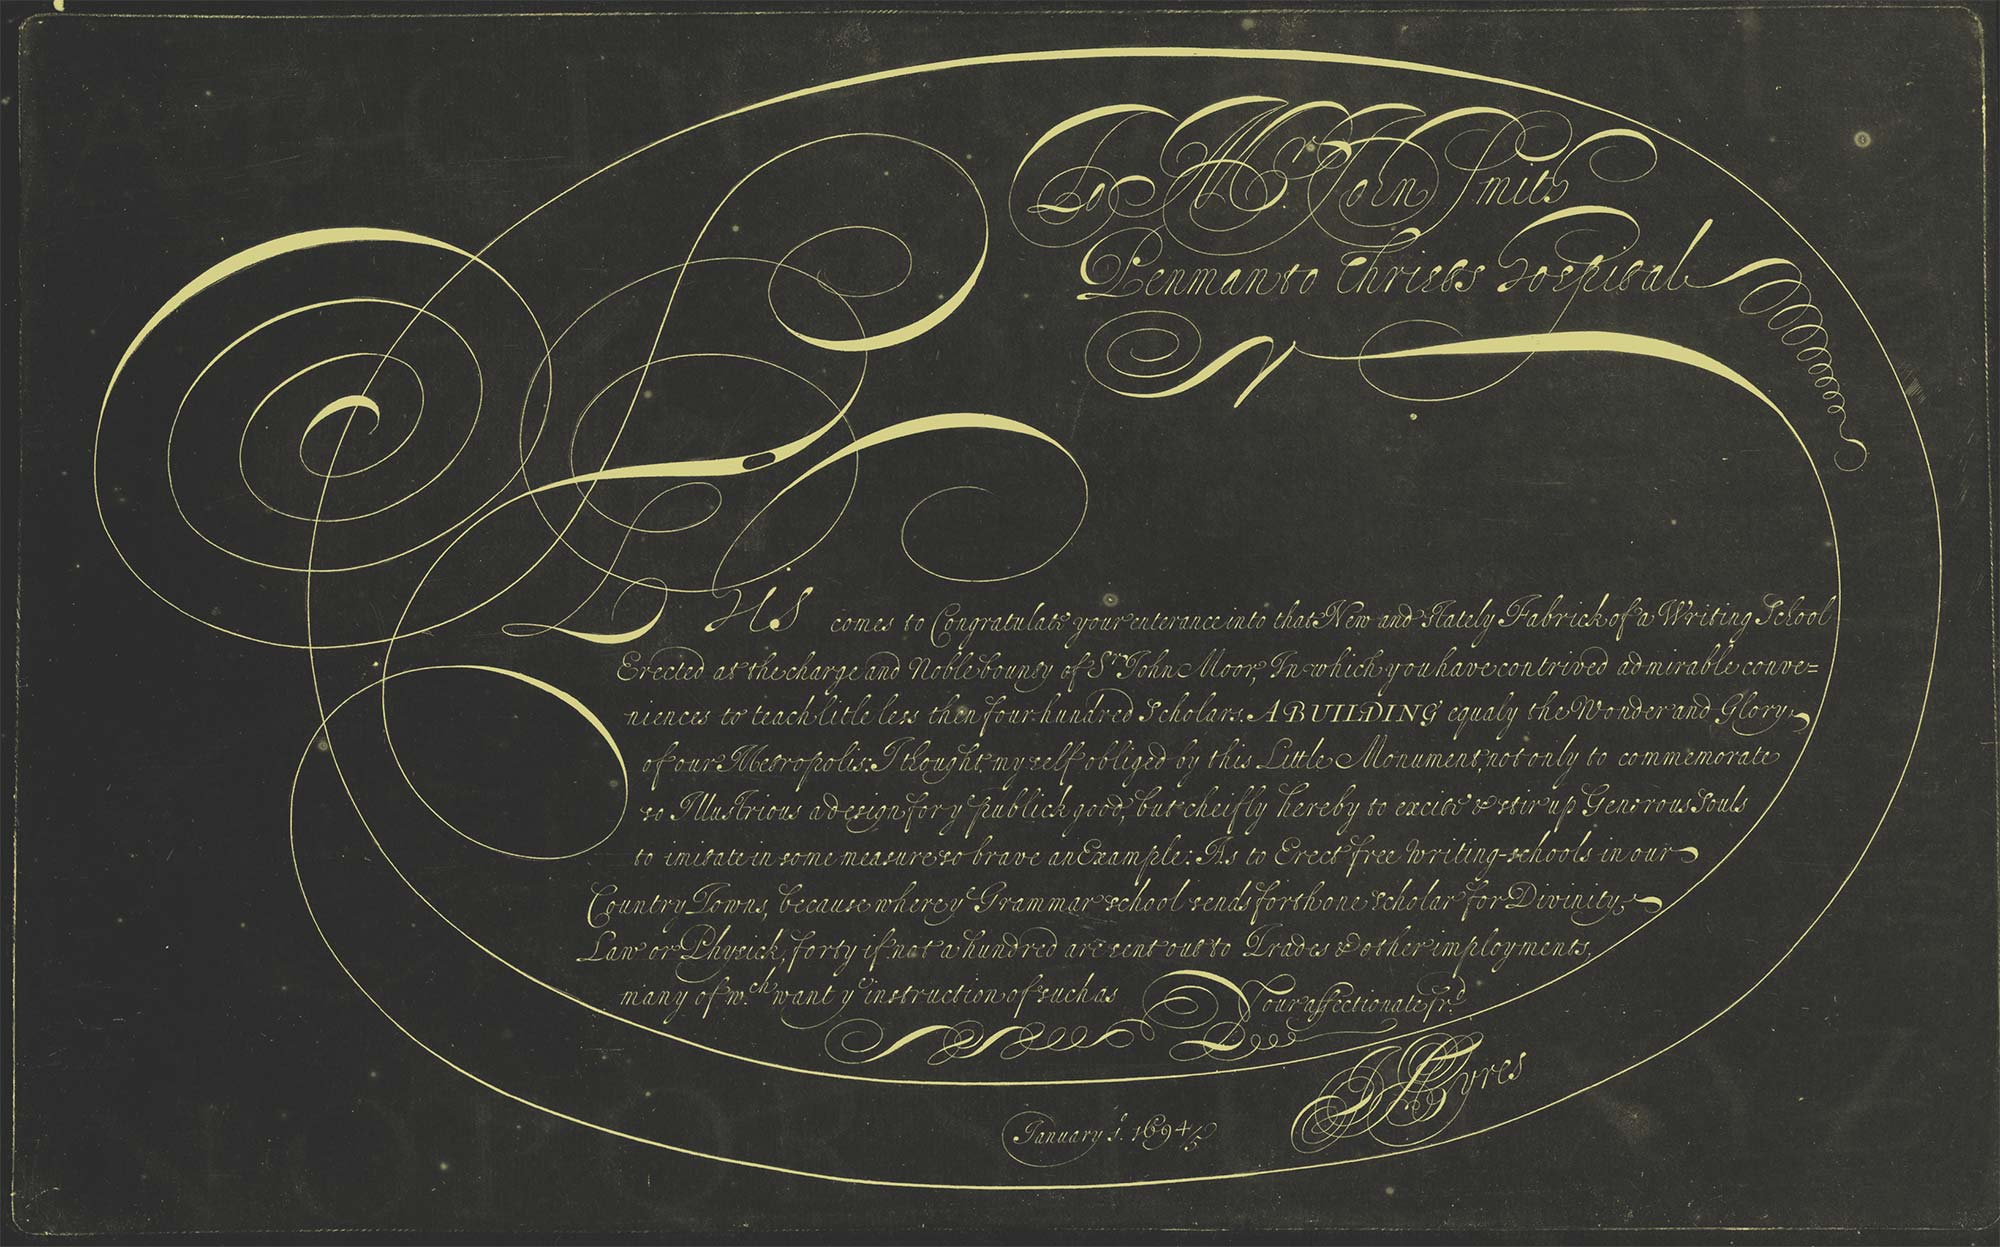 To Mr. John Smith
Penman to Christs Hospital
This comes to Congratulate your enterance into that New and Stately Fabrick of a Writing School
Erected at the charge and Noble bounty of Sr. John Moor, In which you have contrived admirable conve=
niences to teach litle less then four hundred Scholars. A BUILDING equaly the Wonder and Glory,
of our Metropolis: I thought my self obliged by this Little Monument, not only to commemorate
so Illustrious a design for ye publick good, but cheifly hereby to excite & stir up Generous Souls
to imitate in some measure so brave an Example: As to Erect free Writing-schools in our
Country Towns, because where ye Grammar school sends forth one Scholar for Divinity,
Law or Physick, forty if not a hundred are sent out to Trades & other imployments,
many of w.ch want ye instruction of such as Your affectionate fr.d
J Ayres
January 1. 1694/5